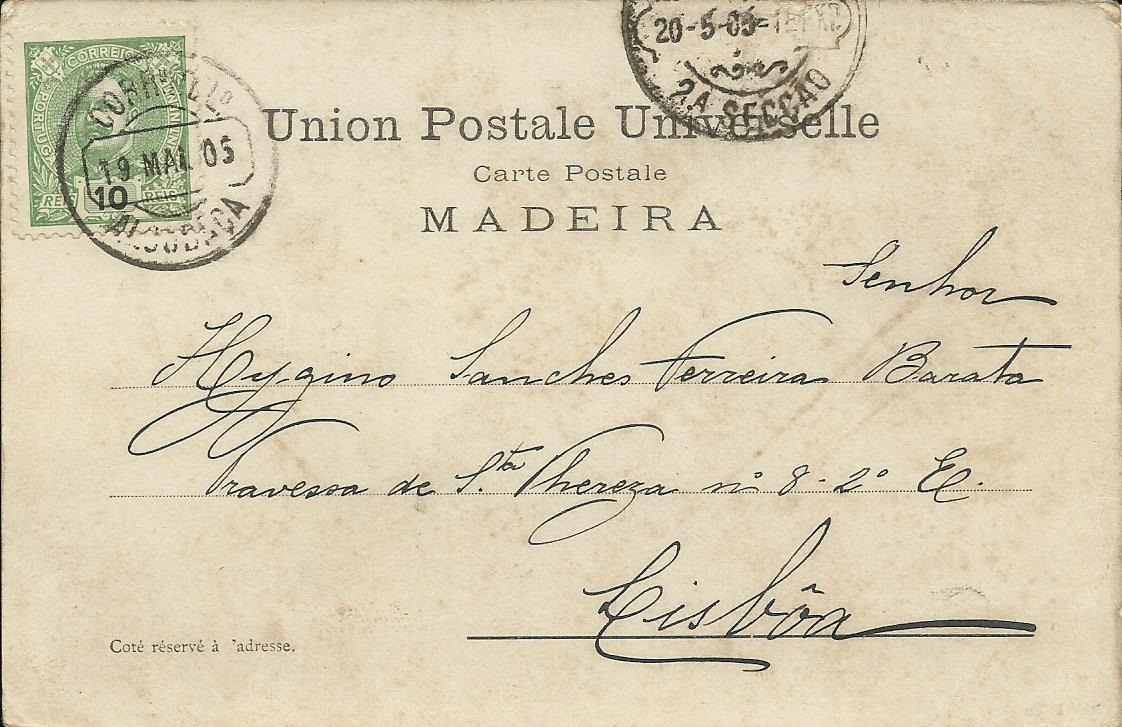 CORREIO
PORTUGAL
10
REIS REIS
19 MAI. 05
20-5-05
2.A SECÇÃO
Union Postale Universelle
Carte Postale
MADEIRA
Senhor
Hygino Sanches Ferreira Barata
Travessa de Sta Thereza nº 8-2º E.
Lisbôa
Coté réservé à 'adresse.